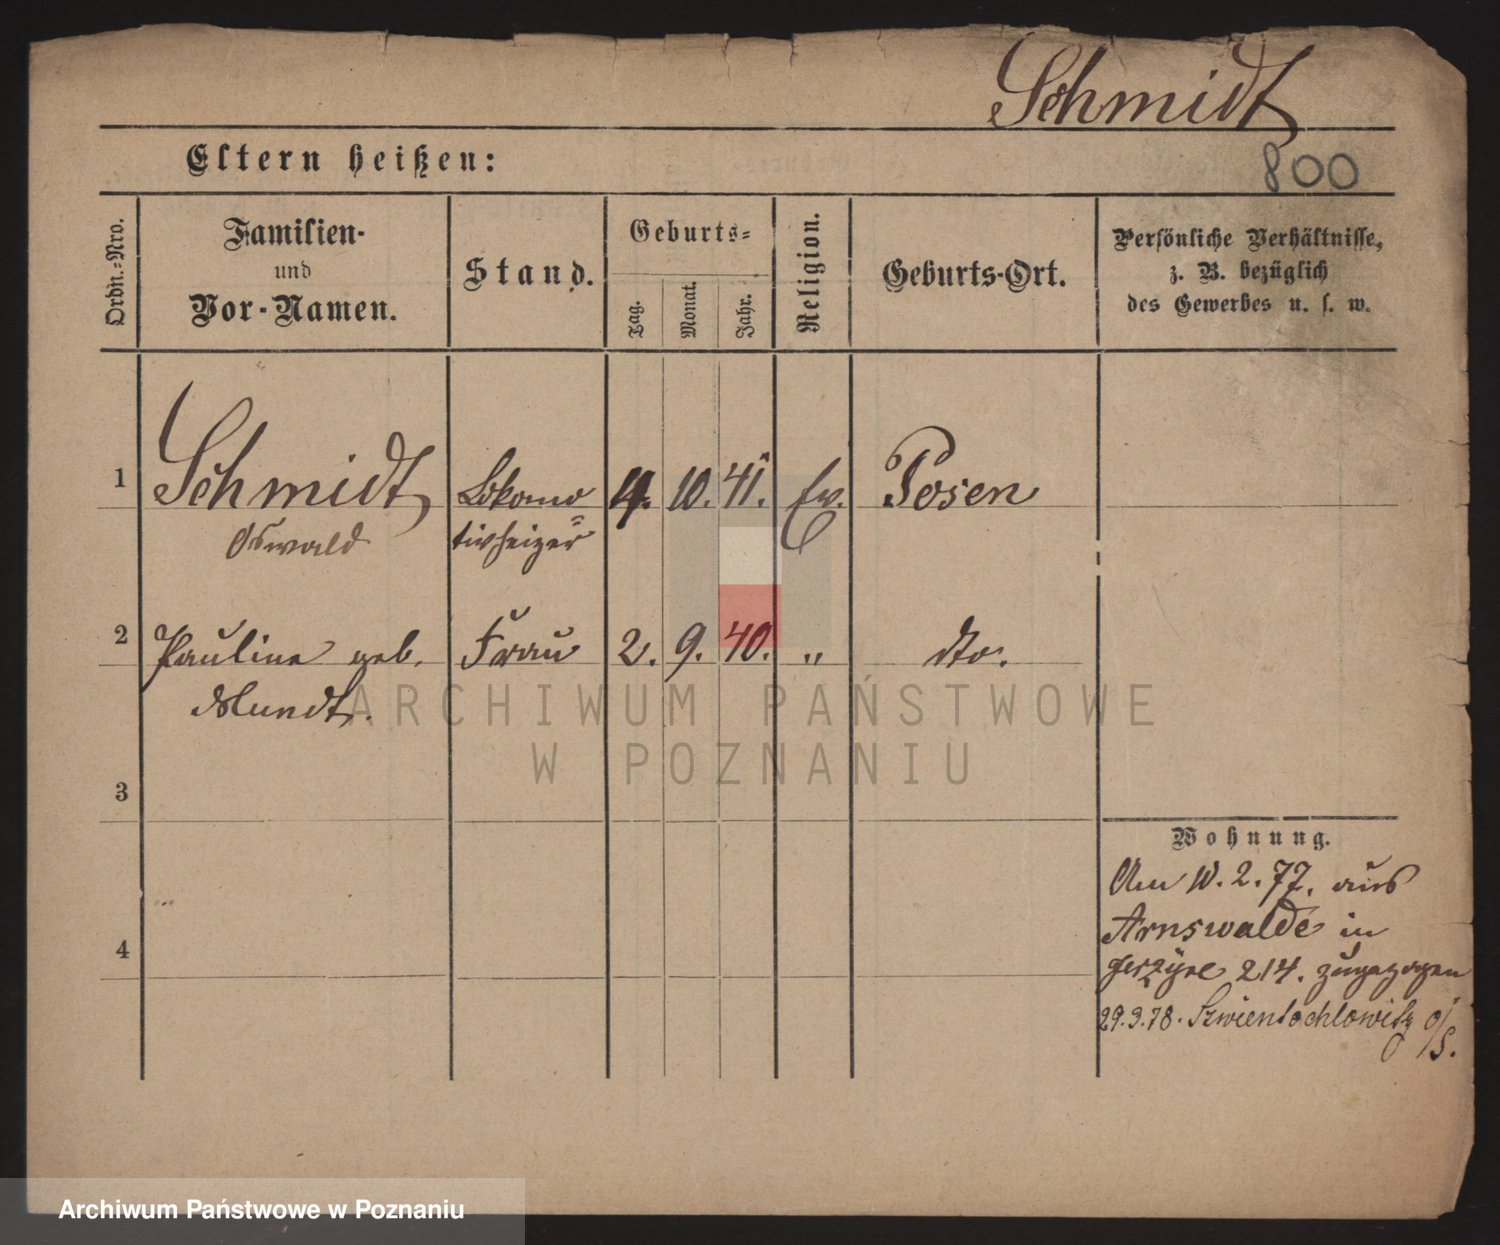 Schmidt
Eltern heißen:
800
Ordn.-Nro.
Familien-
und
Vor-Namen.
Stand.
Geburts-
Tag.
Monat.
Jahr.
Religion.
Geburts-Ort.
Persönliche Verhältnisse,
z. B. bezüglich
des Gewerbes u. s. w.
1 Schmidt Lokomo 10. 41. Ev. Posen
Oswald tivheizer
2 Pauline geb. Frau 2. 9. 40. " dto.
Mundt.
ARCHIWUM PAŃSTWOWE
W POZNANIU
3
Wohnung.
Am 10. 2. 77. aus
Arnswalde in
4
214. zugezogen
29.3.78. Szwientochlowitz O/S.
Archiwum Państwowe w Poznaniu